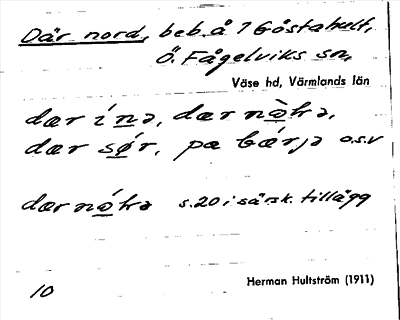 Där nord, beb. å 7 Göstahult,
Ö. Fågelviks sn,
Väse hd, Värmlands län
dær ínə, dær nò̱lrə,
dær sǿr, pa bǽrjə o.s.v
dær nó̱lrə s. 20 i särsk. tillägg
10 Herman Hultström (1911)